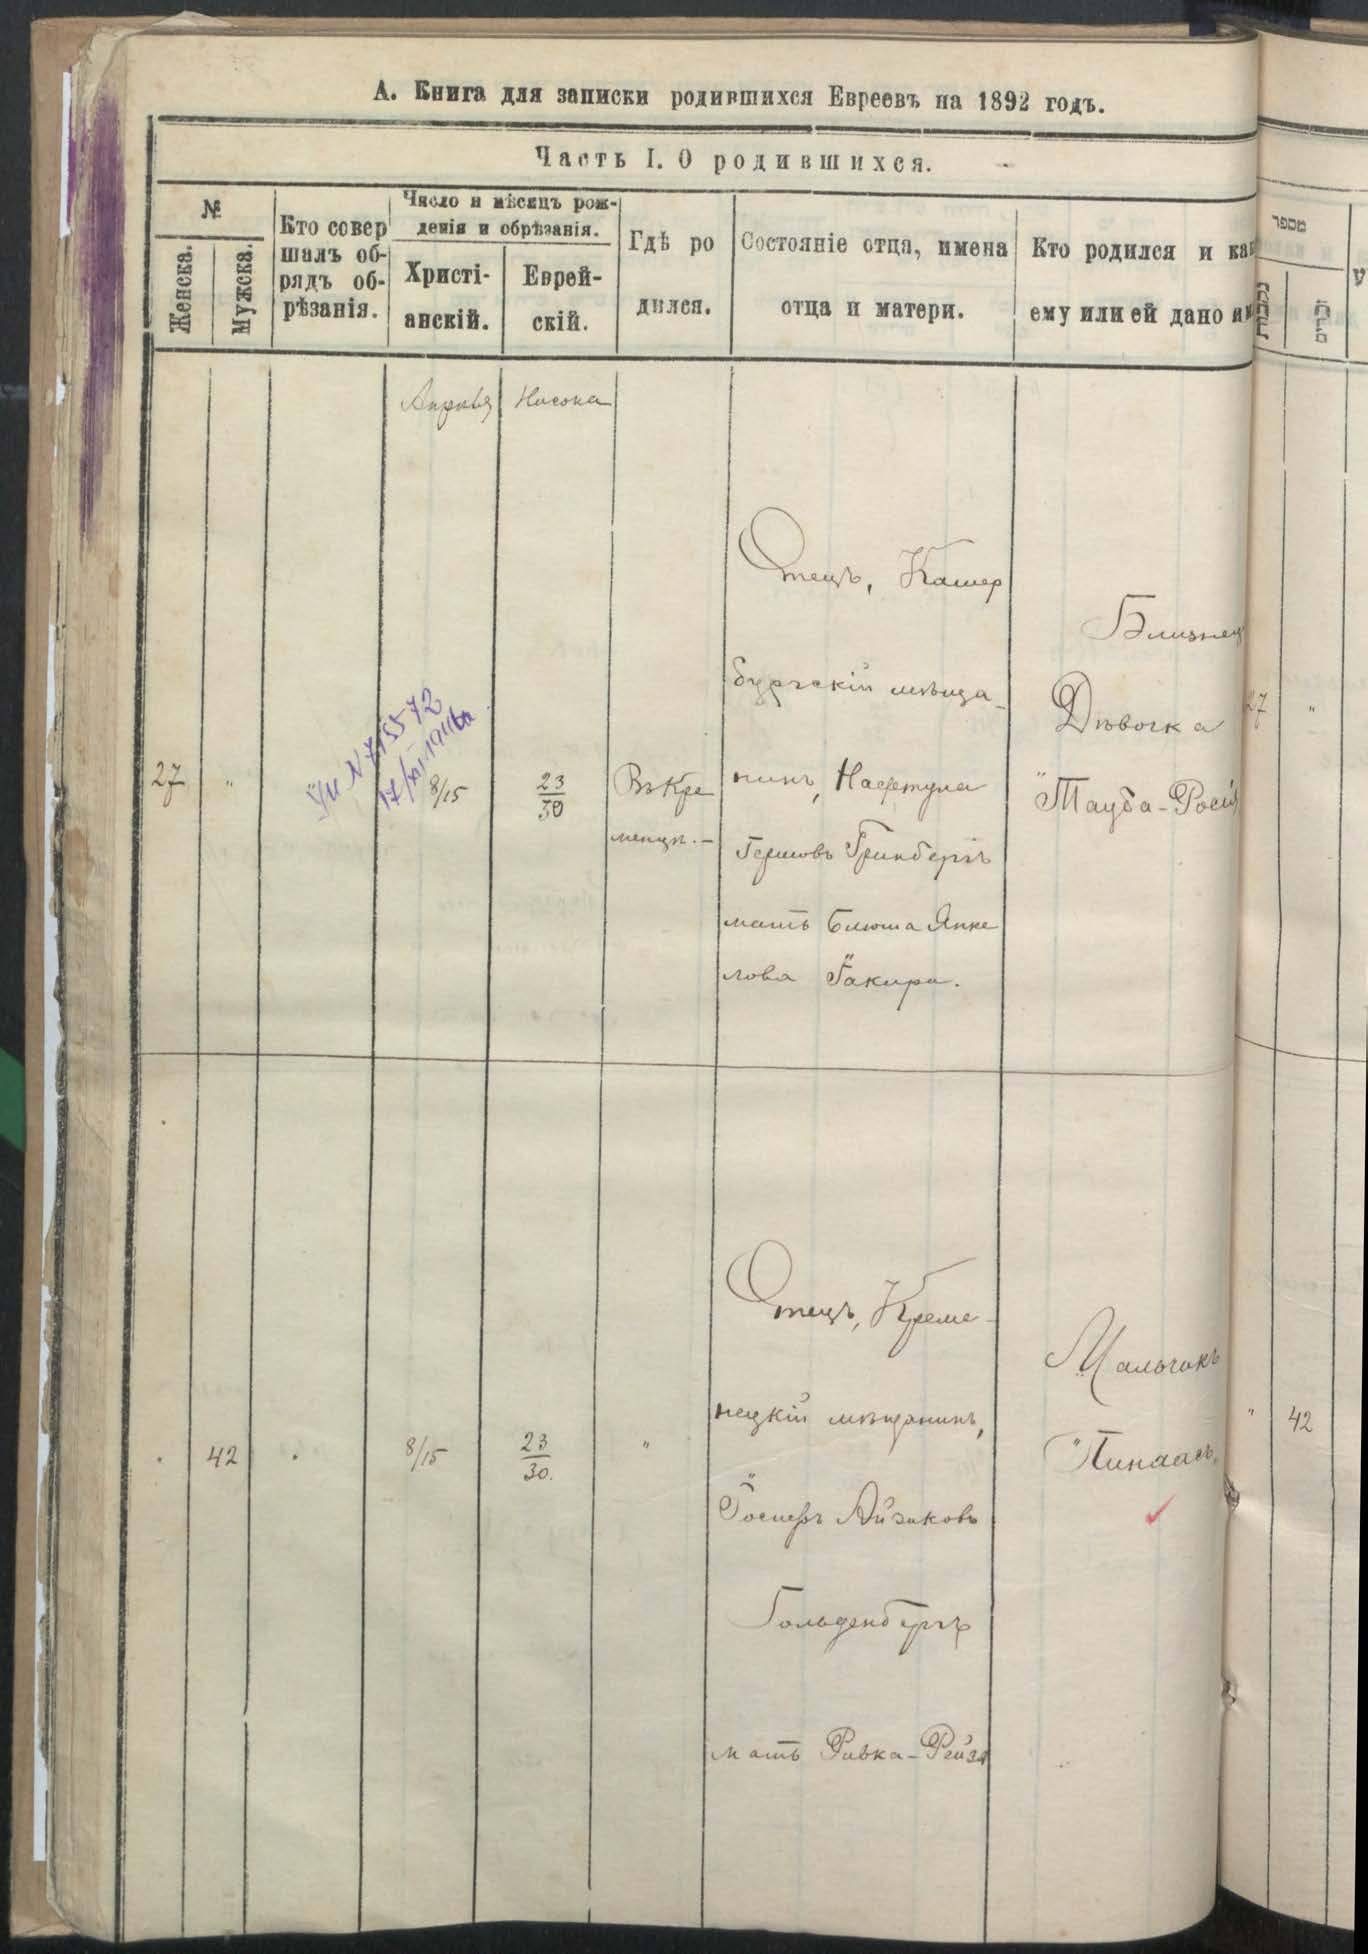 А. Книга для записки родившихся Евреевъ на 1892 годъ.
Часть I. О родившихся.
№
Женска.
Мужска.
Кто совер
шалъ об-
рядъ об-
рѣзанія.
Число и мѣсяцъ рож-
денія и обрѣзанія.
Христі-
анскій.
Еврей-
скій.
Гдѣ ро
дился.
Состояніе отца, имена
отца и матери.
Кто родился и как
ему или ей дано им
מספר
נקבות
זכרים
Апрѣля
Нисона
27
"
8/15
23
30
Въ Кре
менцѣ.-
Отецъ, Кашер
бургскій мѣща-
нинъ, Нафтула
Гершовъ Гринбергъ
мать Блюма Янке
лова
Близнец
Дѣвочка
Тауба-Росия
27
"
42
8/15
23
30.
"
Отецъ, Креме-
нецкій мѣщанинъ,
Іосифъ Айзиковъ
Гольденбергъ
мать Ривка-Рейзя
Мальчикъ
Пинхасъ
"
42